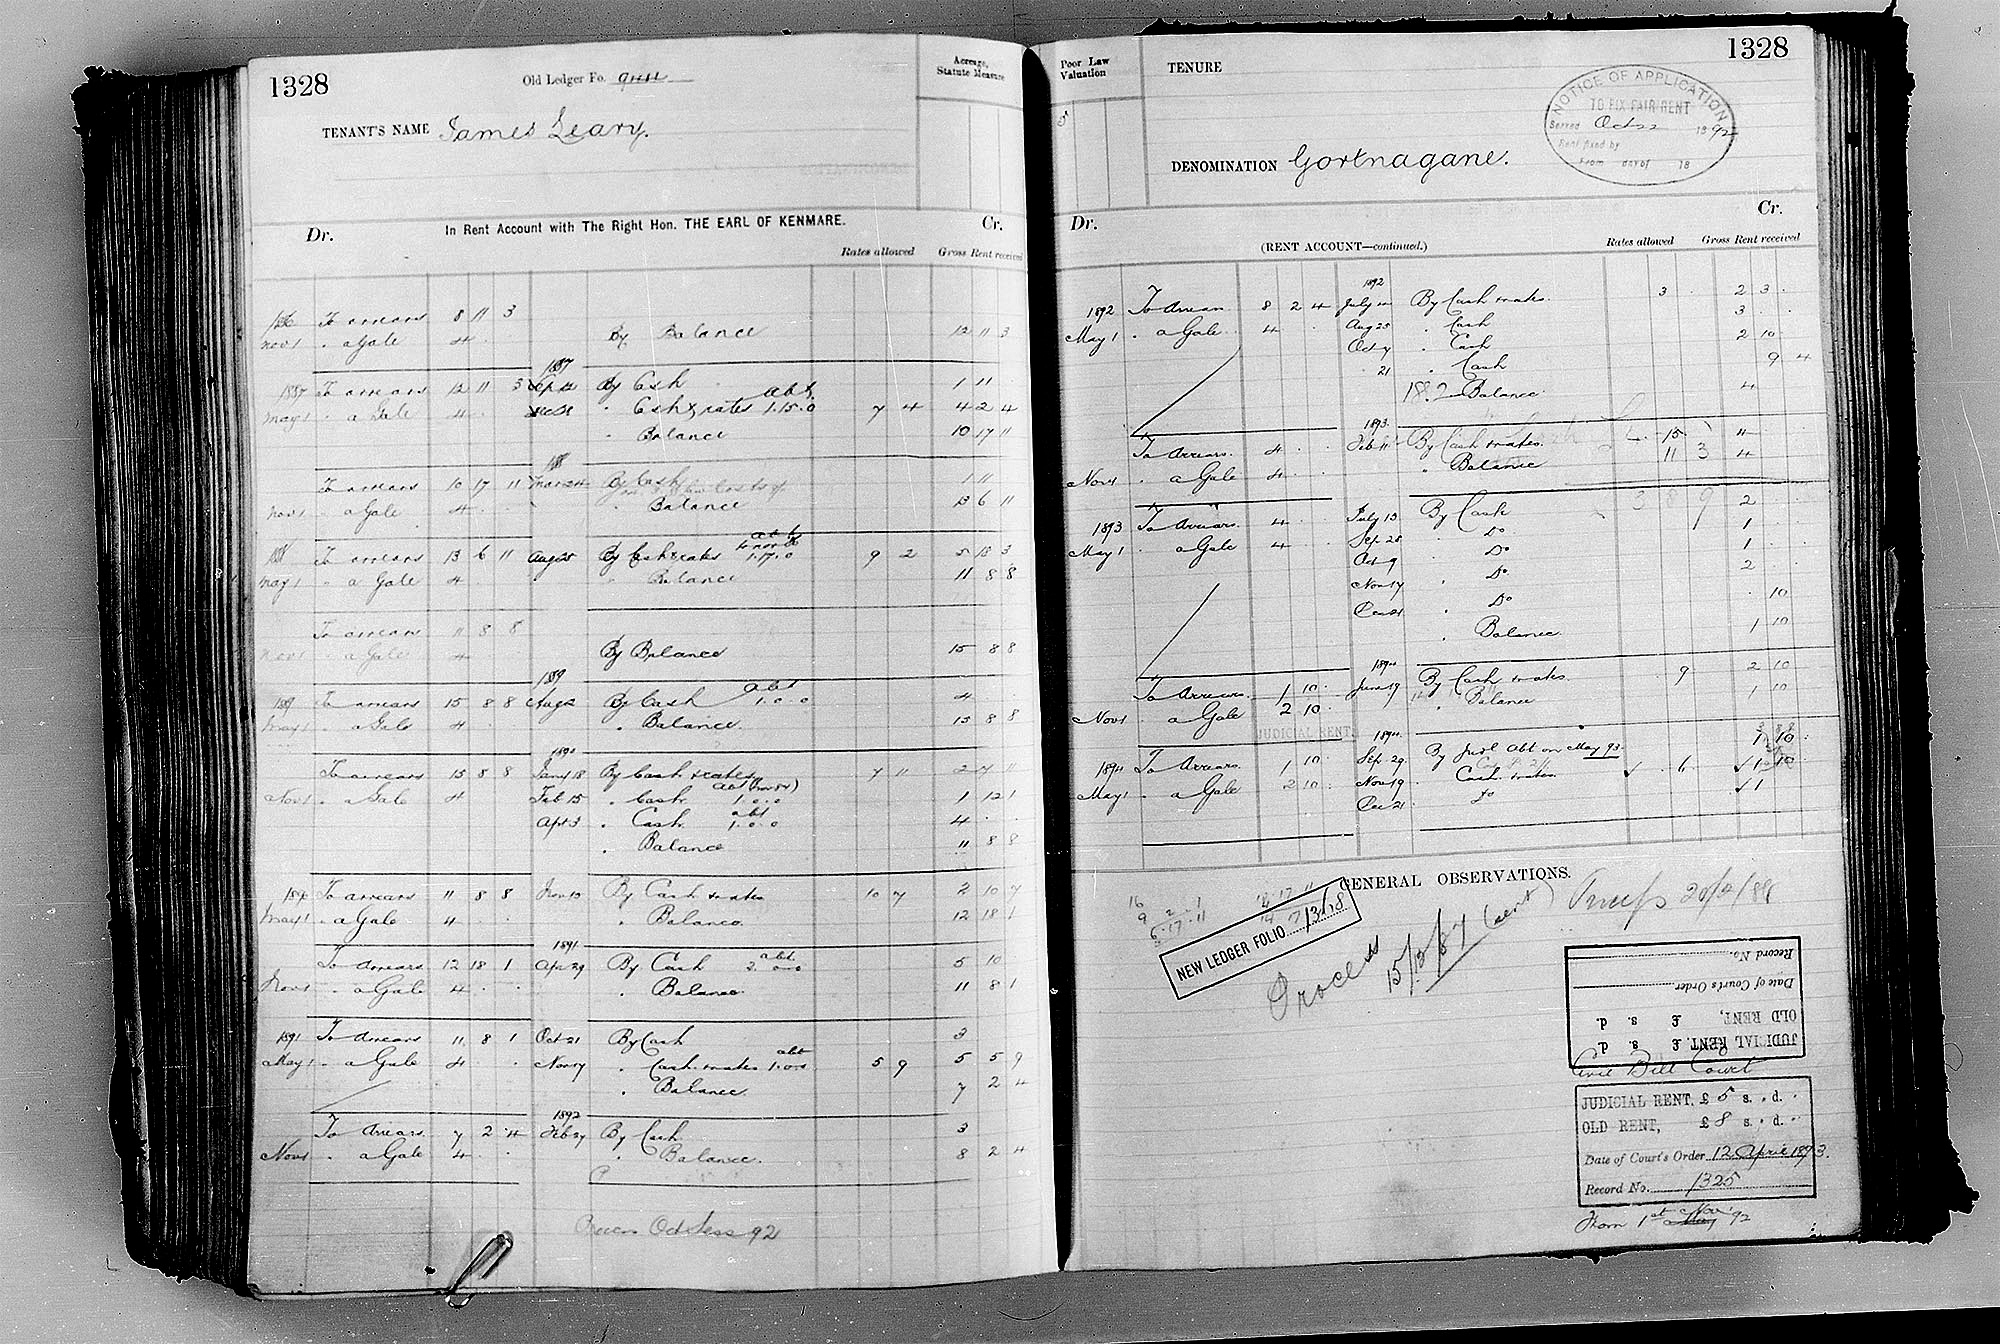 1328
Old Ledger Fo.
Acreage, Statute Measure
TENANT'S NAME James Leary.
In Rent Account with The Right Hon. THE EARL OF KENMARE.
Dr. Cr.
Rates allowed Gross Rent received
To arrears 8 11 3
Nov 1 " a Gale 4 . . By Balance 12 11 3
1887
1887 To arrears 12 11 3 By Cash 1 11
May 1 " a Gale 4 " Cash & rates abt. 1.15.0 7 4 4 2 4
" Balance 10 17 11
To arrears 10 17 11 Mar 24 By Cash 1 11
Nov 1 a Gale 4 " Balance 13 6 11
To arrears 13 6 11 Aug 25 By Cash & rates 1.17.0 9 2 5 18 3
May 1 " a Gale 4 " Balance 11 8 8
To arrears 11 8 8
Nov 1 " a Gale 4 By Balance 15 8 8
1889
1889 To arrears 15 8 8 Aug 2 By Cash abt 1.0.0 4
May 1 " a Gale 4 " Balance. 15 8 8
1890
To arrears 15 8 8 Jany 18 By Cash & rates 7 11 2 7 11
Nov 1 " a Gale 4 Feb 15 " Cash 1.0.0 1 12 1
Apr 3 " Cash abt 1.0.0 4 . .
" Balance 11 8 8
1890 To arrears 11 8 8 Nov 15 By Cash & rates 10 7 2 10 7
May 1 " a Gale 4 " Balance. 12 18 1
1891
To Arrears 12 18 1 Apr 29 By Cash abt 5 10
Nov 1 " a Gale 4 " Balance. 11 8 1
1891 To Arrears 11 8 1 Oct 21 By Cash 3
May 1 " a Gale 4 Nov 17 " Cash & rates abt 1.0.0 5 9 5 5 9
" Balance. 7 2 4
1892
To Arrears. 7 2 4 Feb 27 By Cash 3
Nov 1 " a Gale 4 " Balance. 8 2 4
92
Poor Law Valuation
TENURE
1328
DENOMINATION Gortnagane.
NOTICE OF APPLICATION
TO FIX FAIR RENT
Served Oct 22 1892
Rent fixed by
From day of 18
Dr. Cr.
(RENT ACCOUNT—continued.)
Rates allowed Gross Rent received
1892
1892 To Arrears 8 2 4 July By Cash & rates. 3 . 2 3 .
May 1 " a Gale 4 Aug 25 " Cash 3 .
Oct 7 " Cash 2 10
" 21 Cash 9 4
Balance. 4
1893.
To Arrears. 4 Feb 11 By Cash & rates. 4
Nov 1 " a Gale 4 " Balance 4
1893 To Arrears. 4 July 13 By Cash 2
May 1 " a Gale 4 Sep 28 " Do 1
Oct 9 " Do 1
Nov 17 " Do 2
Dec 21 " Do 10
" Balance 1 10
1894
To Arrears. 1 10 June 19 By Cash & rates. 9 2 10
Nov 1 " a Gale 2 10 " Balance 1 10
JUDICIAL RENT.
1894.
1894 To Arrears. 1 10 Sep 29 By Judl Abt on May 93.
May 1 " a Gale 2 10 Nov 19 Cash & rates. 6 1 10
Dec 21 " Do 1
GENERAL OBSERVATIONS.
NEW LEDGER FOLIO 1318
Process 15/10/87
Record No.
Date of Court's Order
OLD RENT, £ s. d.
JUDICIAL RENT £ s. d.
Civil Bill Court
JUDICIAL RENT, £ 5 s. . d. .
OLD RENT, £ 8 s. . d. .
Date of Court's Order 12 April 1893.
Record No. 1325
From 1st Nov. May '92